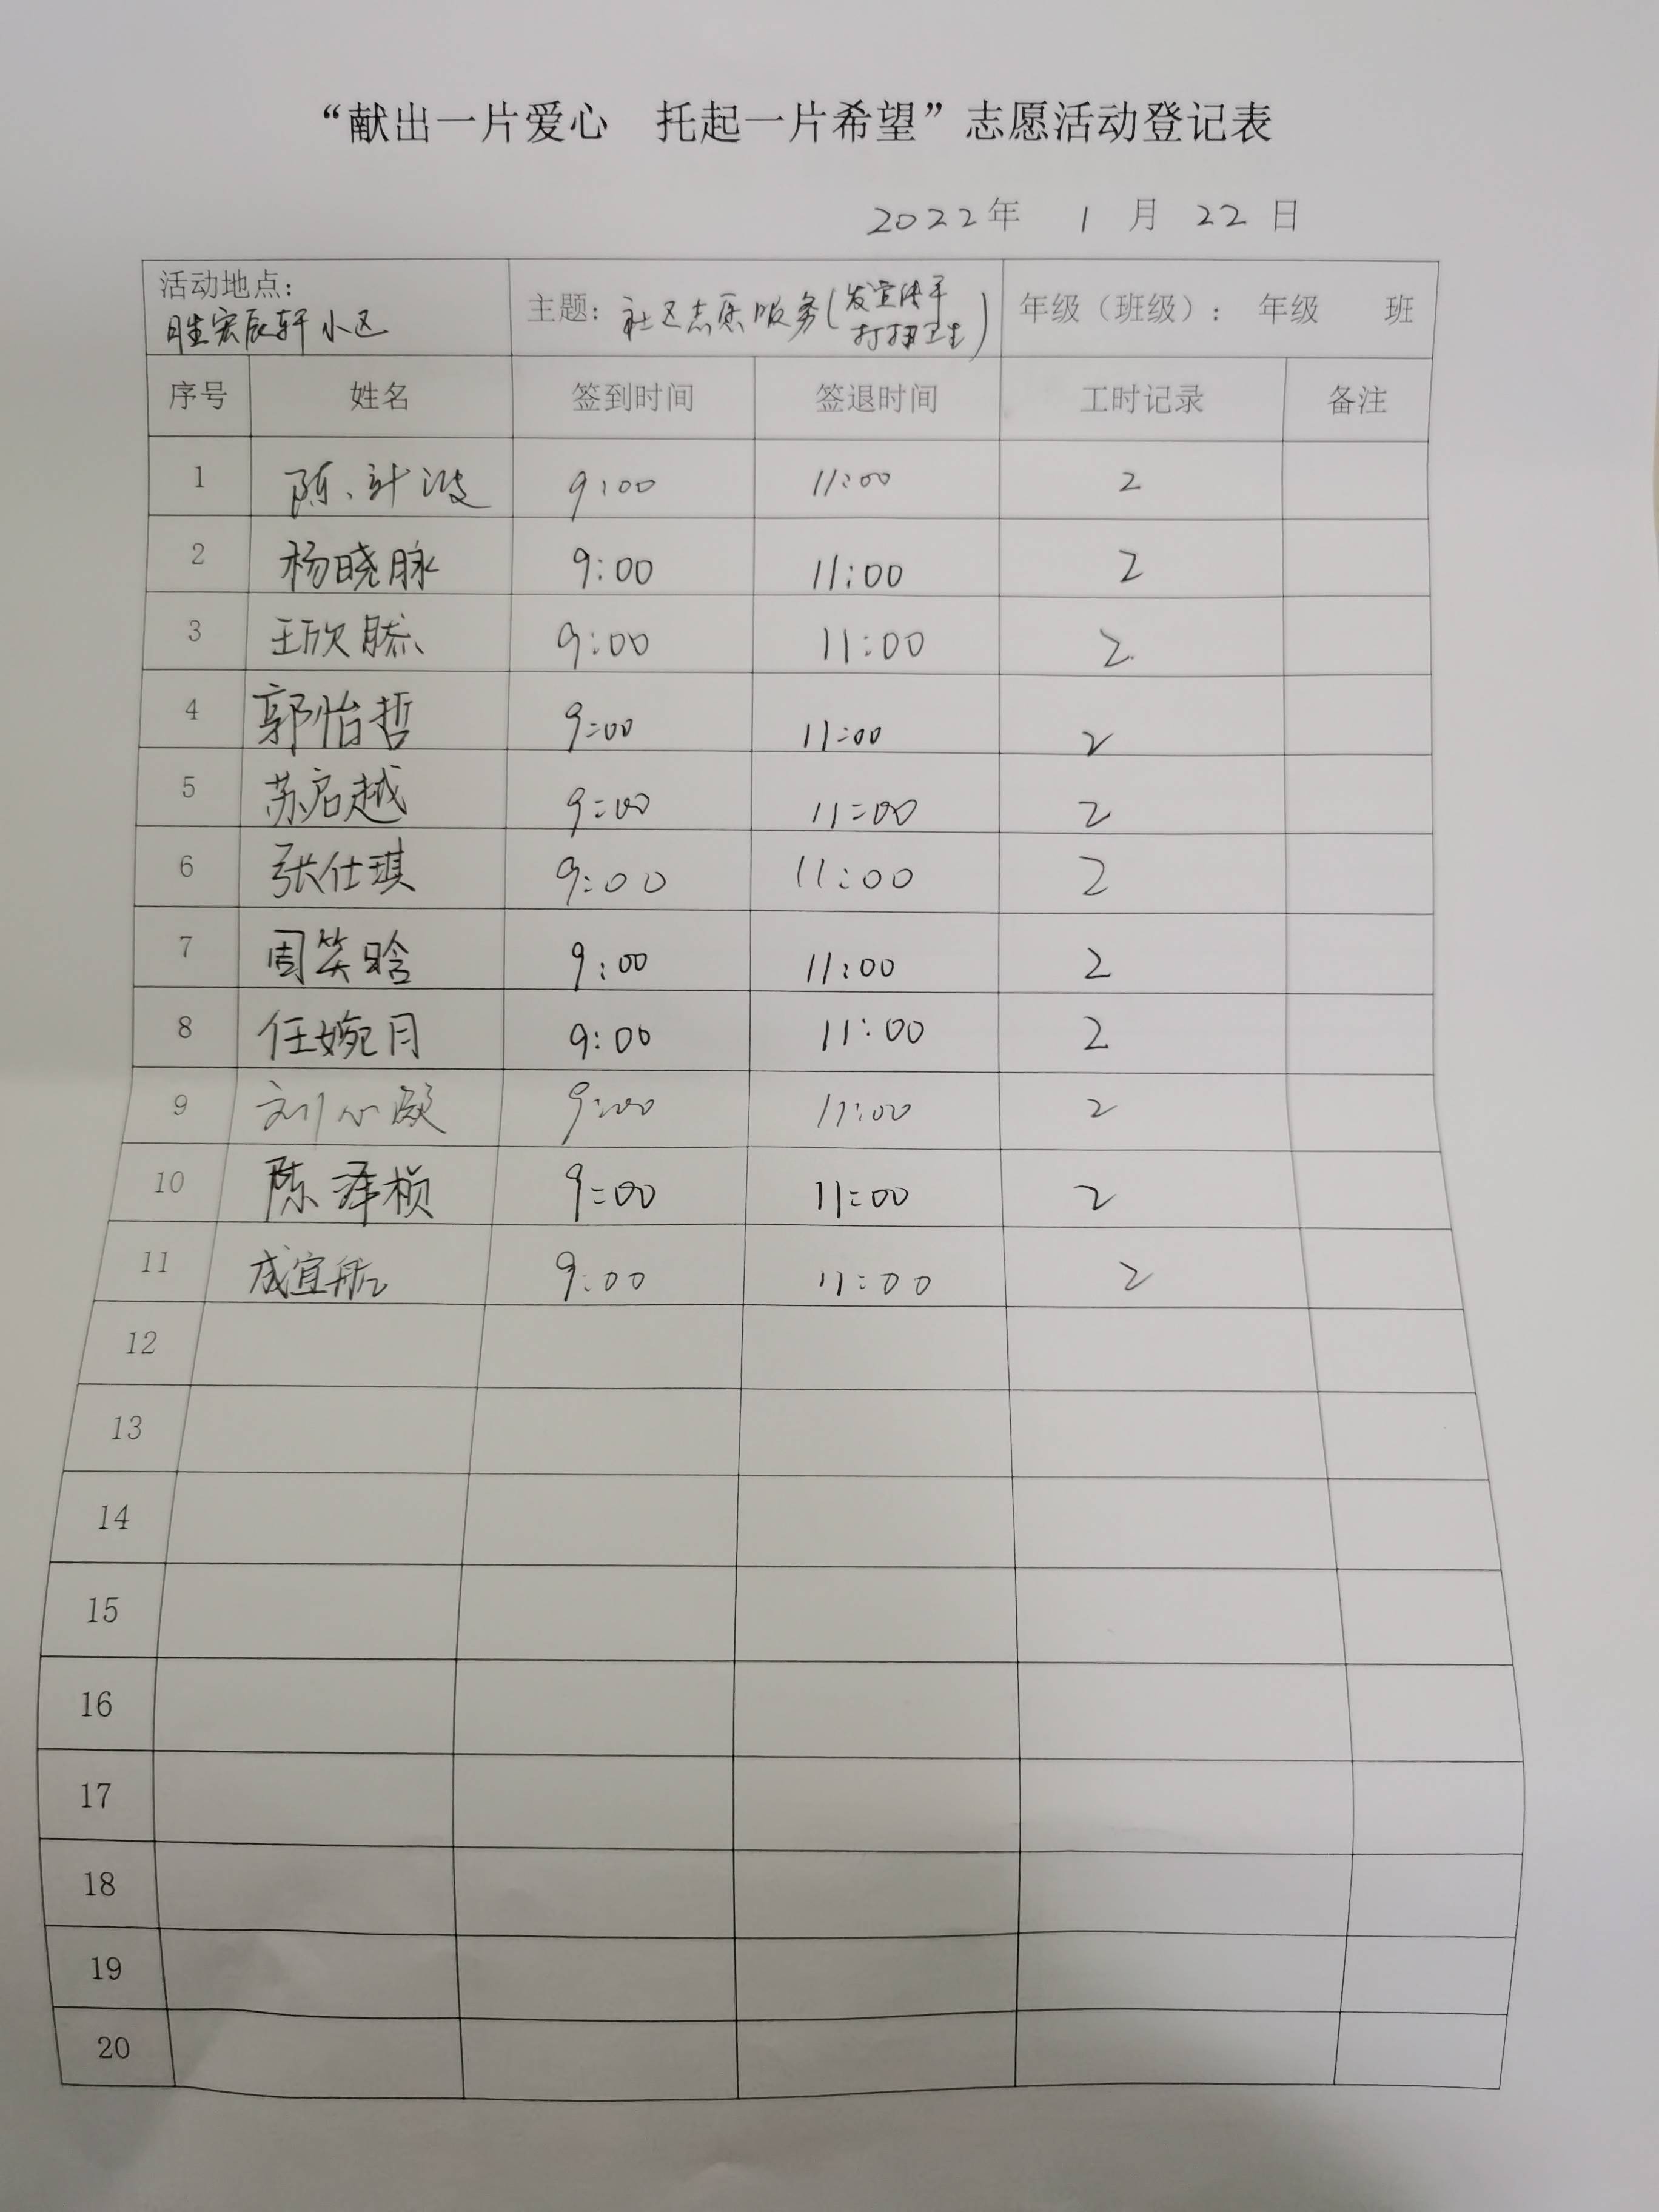 “献出一片爱心　托起一片希望”志愿活动登记表
2022年 1 月 22 日
活动地点：
胜宏辰轩小区
主题：社区志愿服务(发宣传单 打扫卫生)
年级（班级）： 年级 班
序号 姓名 签到时间 签退时间 工时记录 备注
1 陈 9:00 11:00 2
2 杨晓脉 9:00 11:00 2
3 王欣 9:00 11:00 2
4 郭怡哲 9:00 11:00 2
5 苏启越 9:00 11:00 2
6 张仕琪 9:00 11:00 2
7 周笑晗 9:00 11:00 2
8 任婉月 9:00 11:00 2
9 刘心 9:00 11:00 2
10 陈泽桢 9:00 11:00 2
11 成宜航 9:00 11:00 2
12
13
14
15
16
17
18
19
20